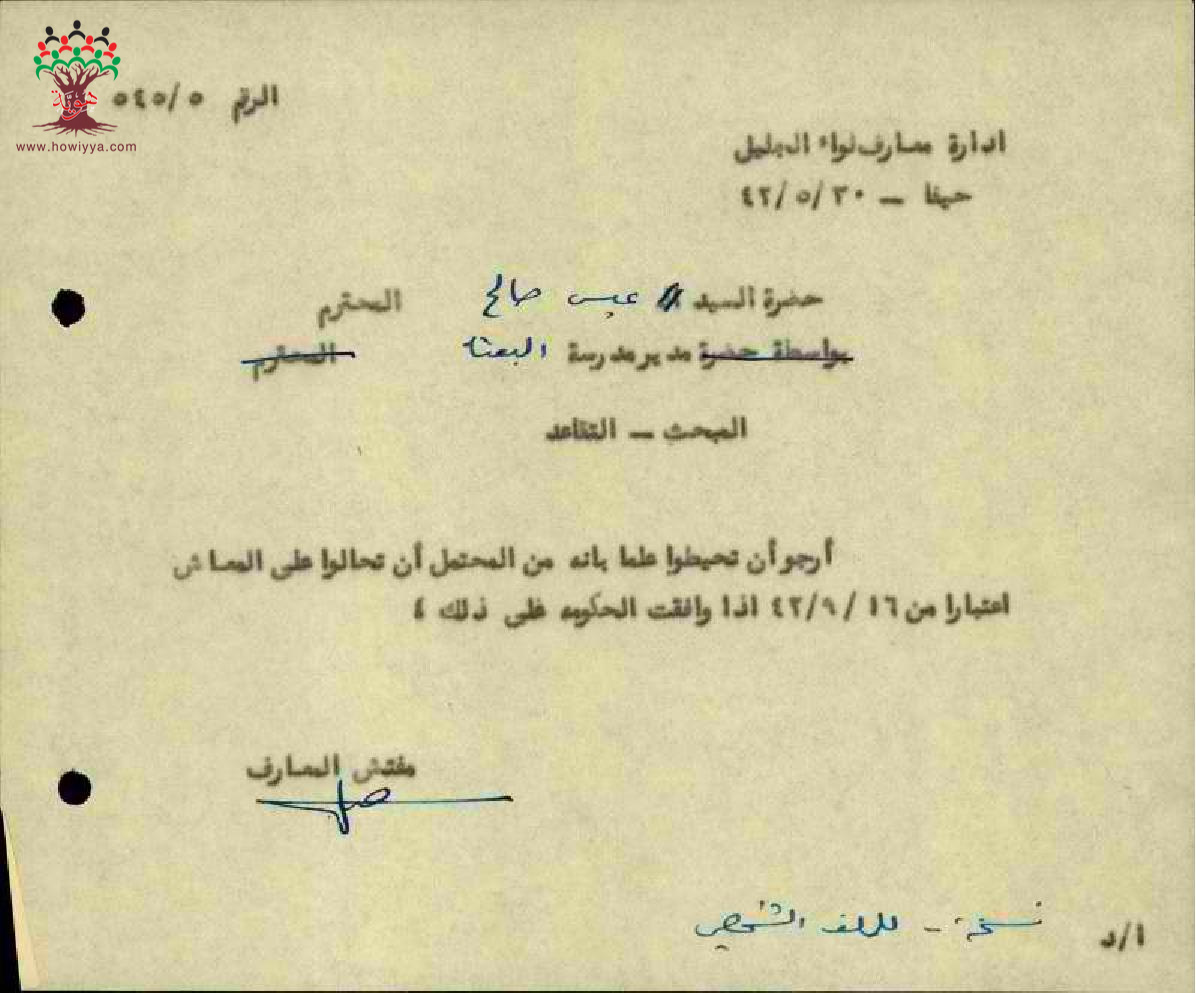 هوية
www.howiyya.com
الرقم ٥٤٥/٥
ادارة معارف لواء الجليل
حيفا – ٤٢/٥/٣٠
حضرة السيد صالح المحترم
بواسطة حضرة مدير مدرسة البعنة المحترم
المبحث – التقاعد
أرجو أن تحيطوا علما بانه من المحتمل أن تحالوا على المعاش
اعتبارا من ١٦ /٤٢/٩ اذا وافقت الحكومه على ذلك ٤
مفتش المعارف
نسخة – للملف الشخصي
ا/د